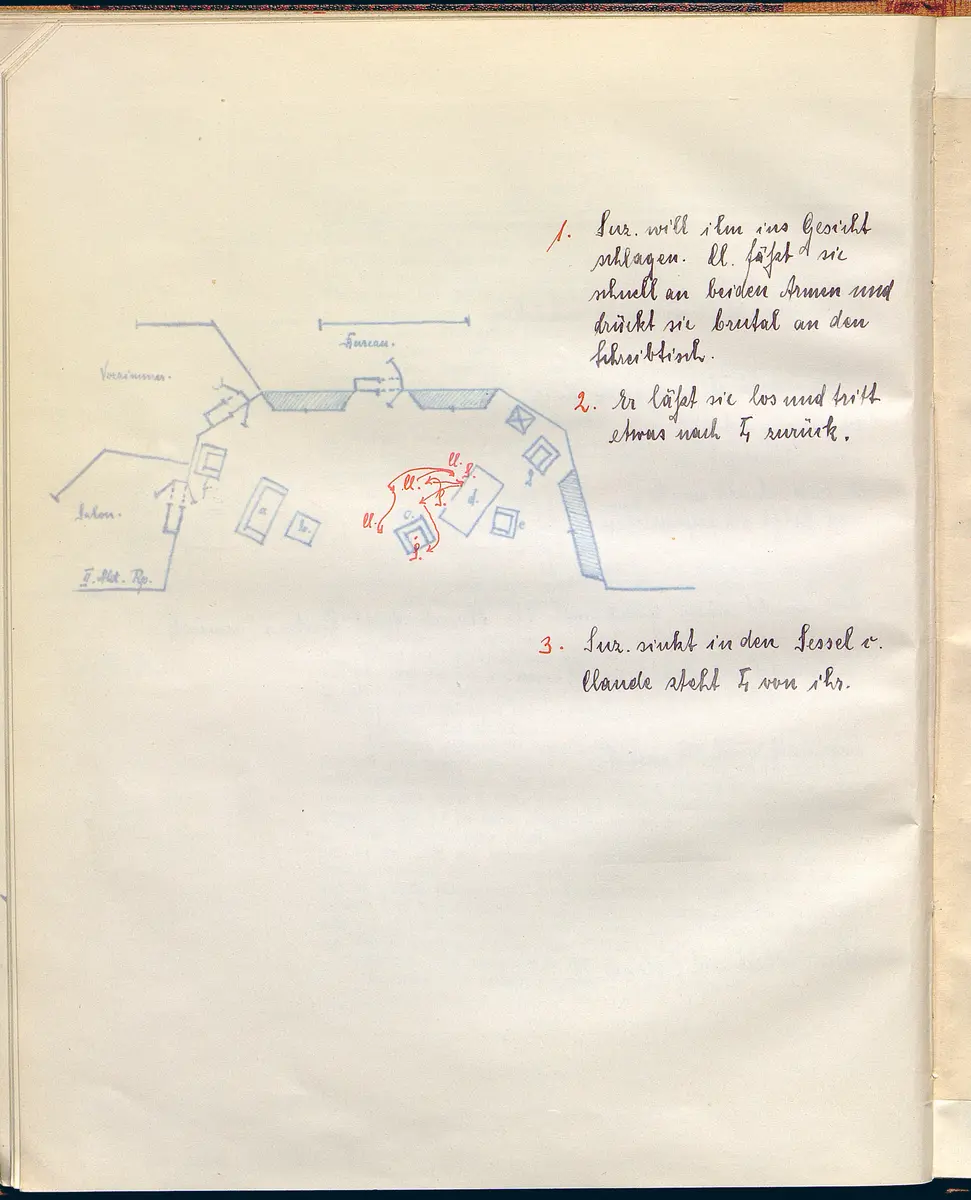 1. Suz. will ihm ins Gesicht
schlagen. Cl. faßt sie
schnell an beiden Armen und
drückt sie brutal an den
Schreibtisch.
2. Er läßt sie los und tritt
etwas nach zurück.
Bureau.
Vorzimmer.
Salon.
II. Akt. Rp.
a
b.
c.
d.
e
f
g
Cl.
S.
Cl.
S.
Cl.
S.
3. Suz. sinkt in den Sessel c.
Claude steht von ihr.